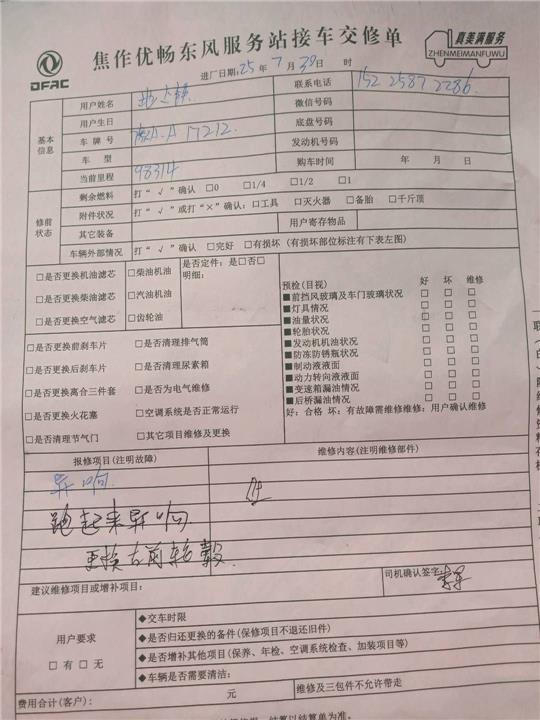 DFAC
焦作优畅东风服务站接车交修单
真美满服务
ZHENMEIMANFUWU
进厂日期:25年7月30日 时
基本信息
用户姓名
联系电话 152 2587 2286
用户生日
微信号码
车牌号 A 17212
底盘号码
车型
发动机号码
当前里程 98314
购车时间 年 月 日
修前状态
剩余燃料 打“√”确认 □0 □1/4 □1/2 □1
附件状况 打“√”或打“×”确认:□工具 □灭火器 □备胎 □千斤顶
其它装备
用户寄存物品
车辆外部情况 打“√”确认 □完好 □有损坏(有损坏部位标注有下表左图)
□是否更换机油滤芯 □柴油机油
□是否更换柴油滤芯 □汽油机油
□是否更换空气滤芯 □齿轮油
是否定件:是□否□
明细:
□是否更换前刹车片 □是否清理排气筒
□是否更换后刹车片 □是否清理尿素箱
□是否更换离合三件套 □是否为电气维修
□是否更换火花塞 □空调系统是否正常运行
□是否清理节气门 □其它项目维修及更换
预检(目视) 好 坏 维修
■前挡风玻璃及车门玻璃状况 □ □ □
■灯具情况 □ □ □
■油量状况 □ □ □
■轮胎状况 □ □ □
■发动机机油状况 □ □ □
■防冻防锈瓶状况 □ □ □
■制动液液面 □ □ □
■动力转向液液面 □ □ □
■变速箱漏油情况 □ □ □
■后桥漏油情况 □ □ □
好:合格 坏:有故障需维修维修:用户确认维修
报修项目(注明故障)
维修内容(注明维修部件)
异响
跑起来异响
更换左前轮毂
建议维修项目或增补项目:
司机确认签字:
用户要求
□有 □无
◆交车时限
◆是否归还更换的备件(保修项目不退还旧件)
◆是否增补其他项目(保养、年检、空调系统检查、加装项目等)
◆车辆是否需要清洁:
费用合计(客户): 元
维修及三包件不允许带走